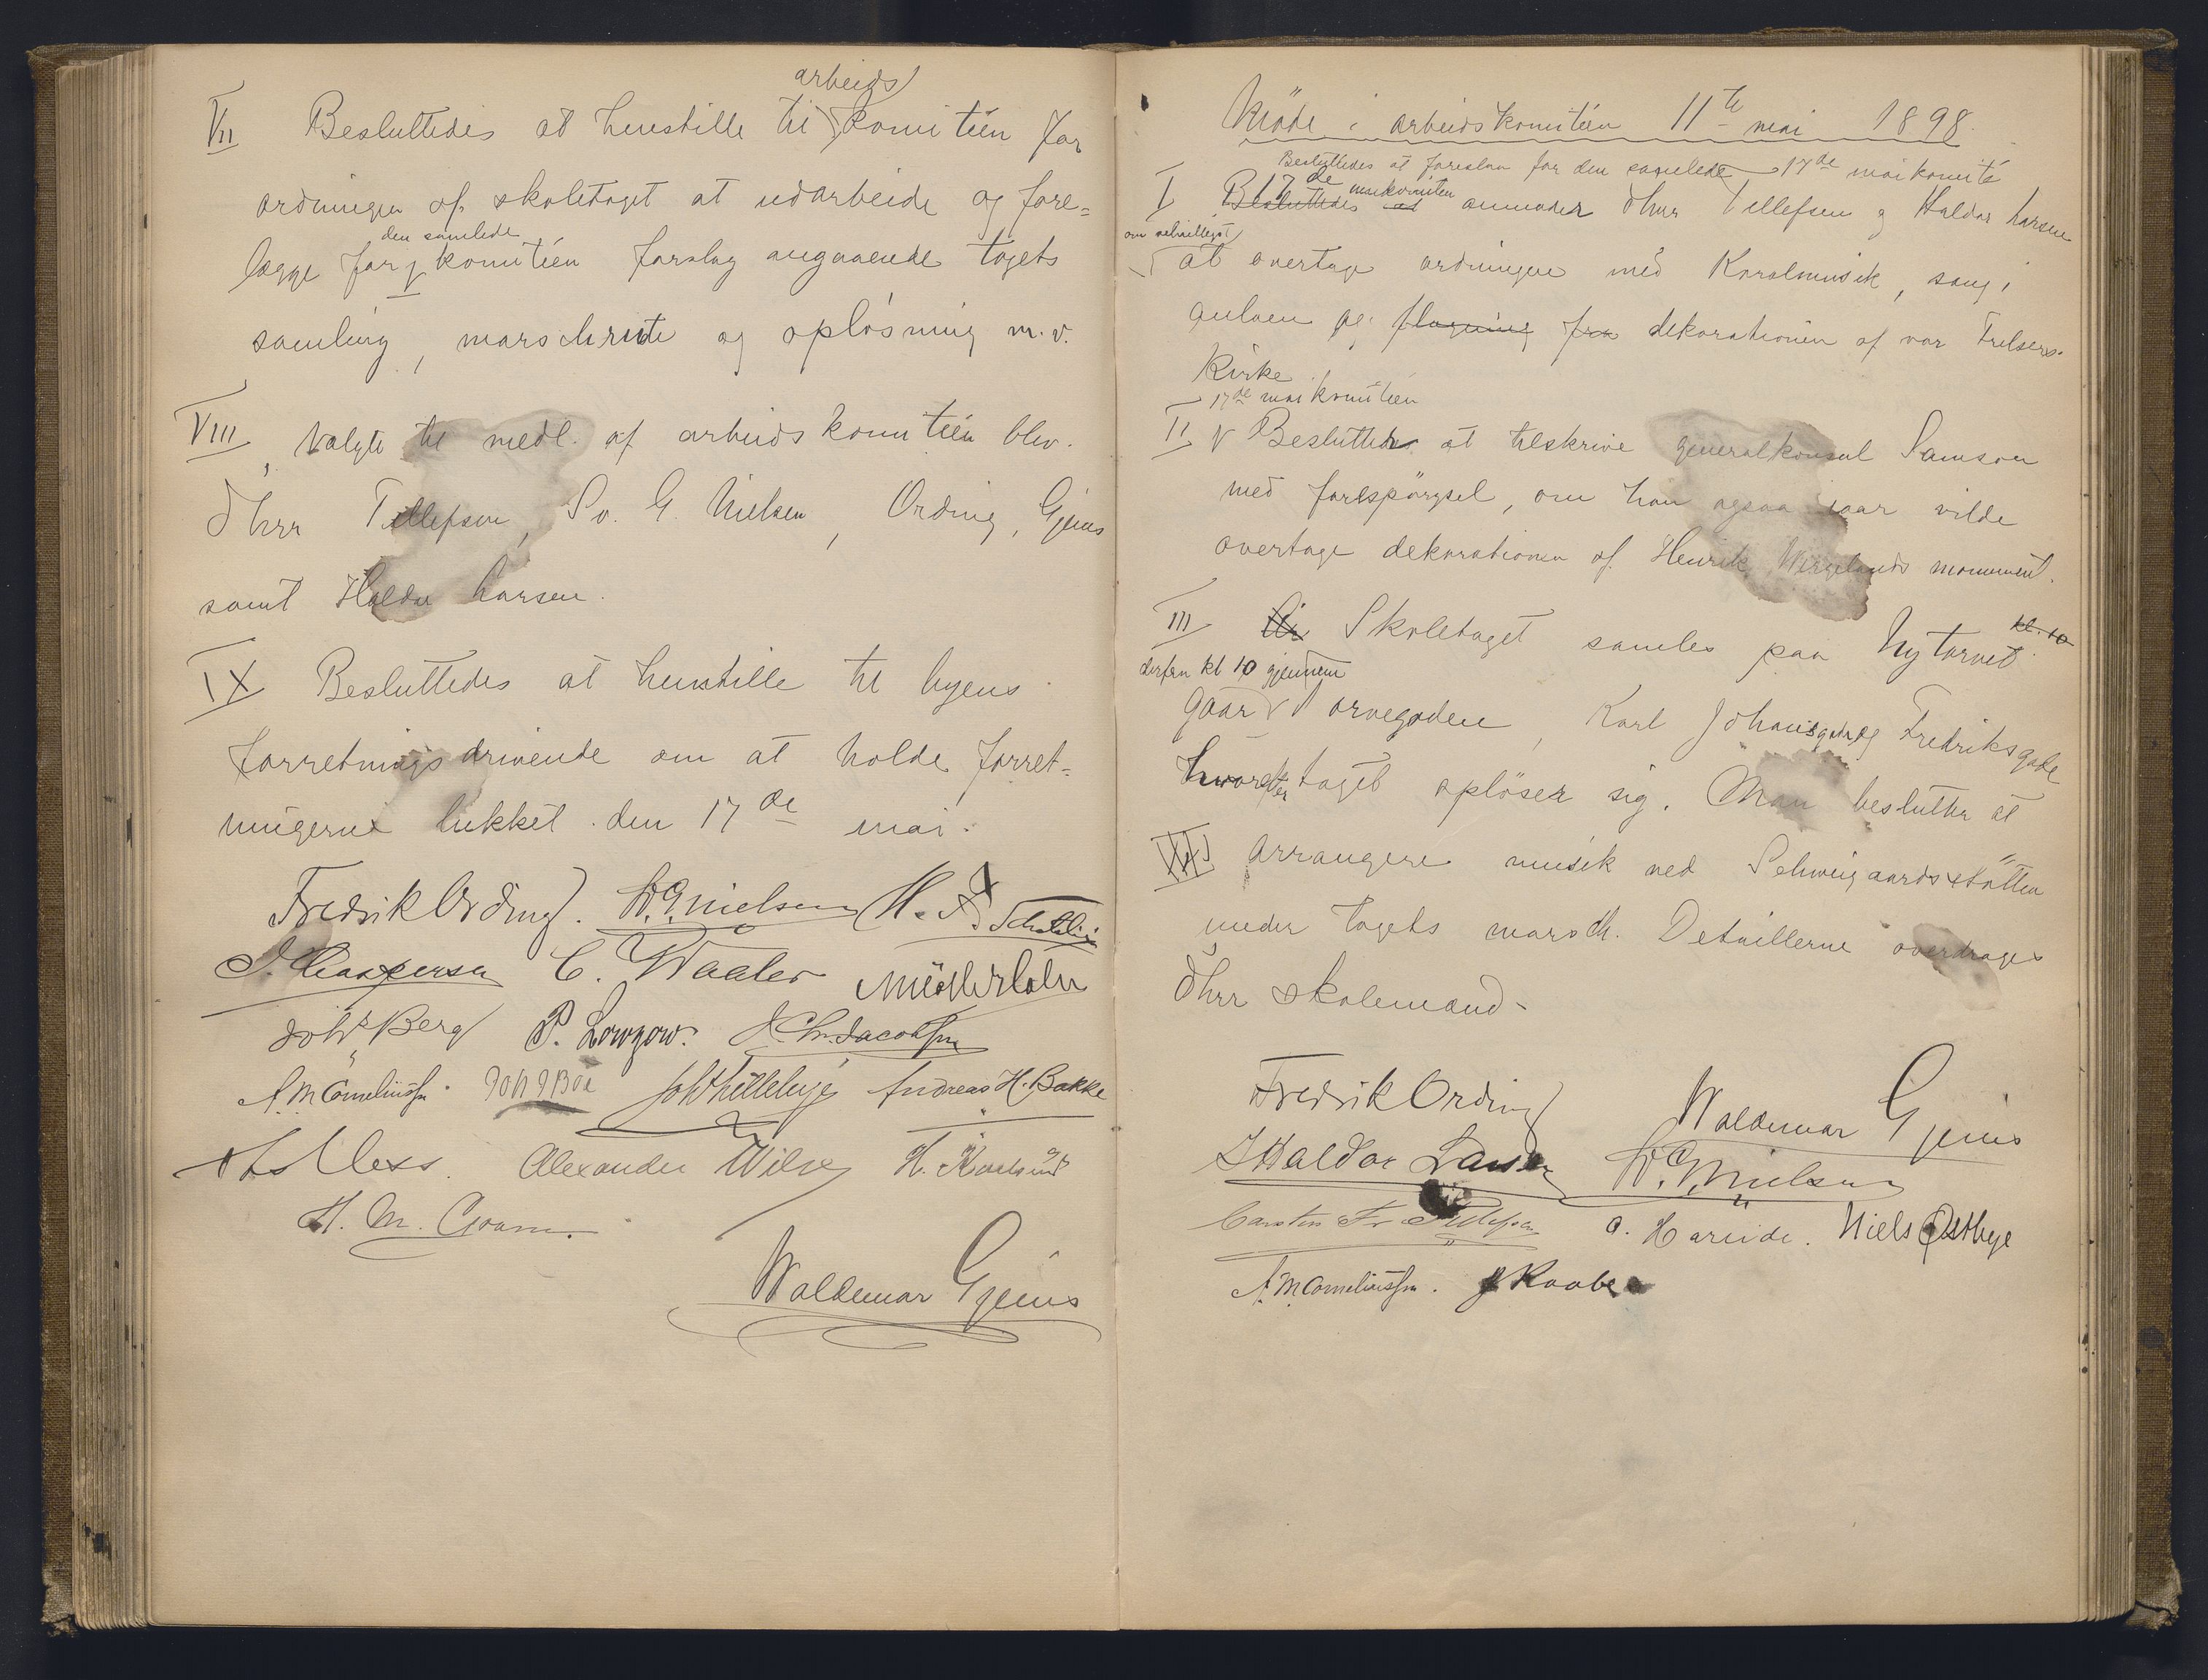 arbeids
VII Besluttedes at henstille til komitéen for
ordningen af skoletoget at udarbeide og fore=
den samlede
lægge for komitéen forslag angaaende togets
samling, marschrute og opløsning m.v.
VIII Valgte til medl. af arbeidskomitéen blev
dhrr Tellefsen, Sv. G. Nielsen, Ording, Gjems
samt Haldor Larsen.
IX Besluttedes at henstille til byens
forretningsdrivende om at holde forret=
ningerne lukket den 17de mai.
Fredrik Ording. N. G. Nielsen H. F.
J. Caspersen C. Waaler
Joh's Berg P. Lowzow. Chr. Jacobsen
A. M. Corneliussen. Joh Boe Andreas H. Bakke
Alexander Wilse H.
H. M.
Waldemar Gjems
Möde i arbeidskomitéen 11te mai 1898.
Besluttedes at foreslaa for den samlede 17de mai komité
I Besluttedes at 17de maikomiteen anmoder dhrr Tellefsen og Haldor Larsen
om velvilligst
at overtage ordningen med Koralmusik, sang i
gulven og flagning fra dekorationen af vor Frelsers
Kirke
17de mai komitéen
II Beslutter at tilskrive generalkonsul Samson
med forespörgsel, om han ogsaa iaar vilde
overtage dekorationen af Henrik Wergelands monument.
III Skoletoget samles paa Nytorvet kl. 10
derfra kl 10 gjennem
gaar Torvegaden, Karl Johansgade og Fredriksgade
hvorefter toget oplöser sig. Man beslutter at
arrangere musik ved Schweigaardsstötten
under togets marsch. Detaillerne overdrages
dhrr skolemænd.
Fredrik Ording Waldemar Gjems
Haldor Larsen N. G. Nielsen
Carsten Fr. Tellefsen O. Hareide. Niels Østbye
A. M. Corneliussen. J Raabe